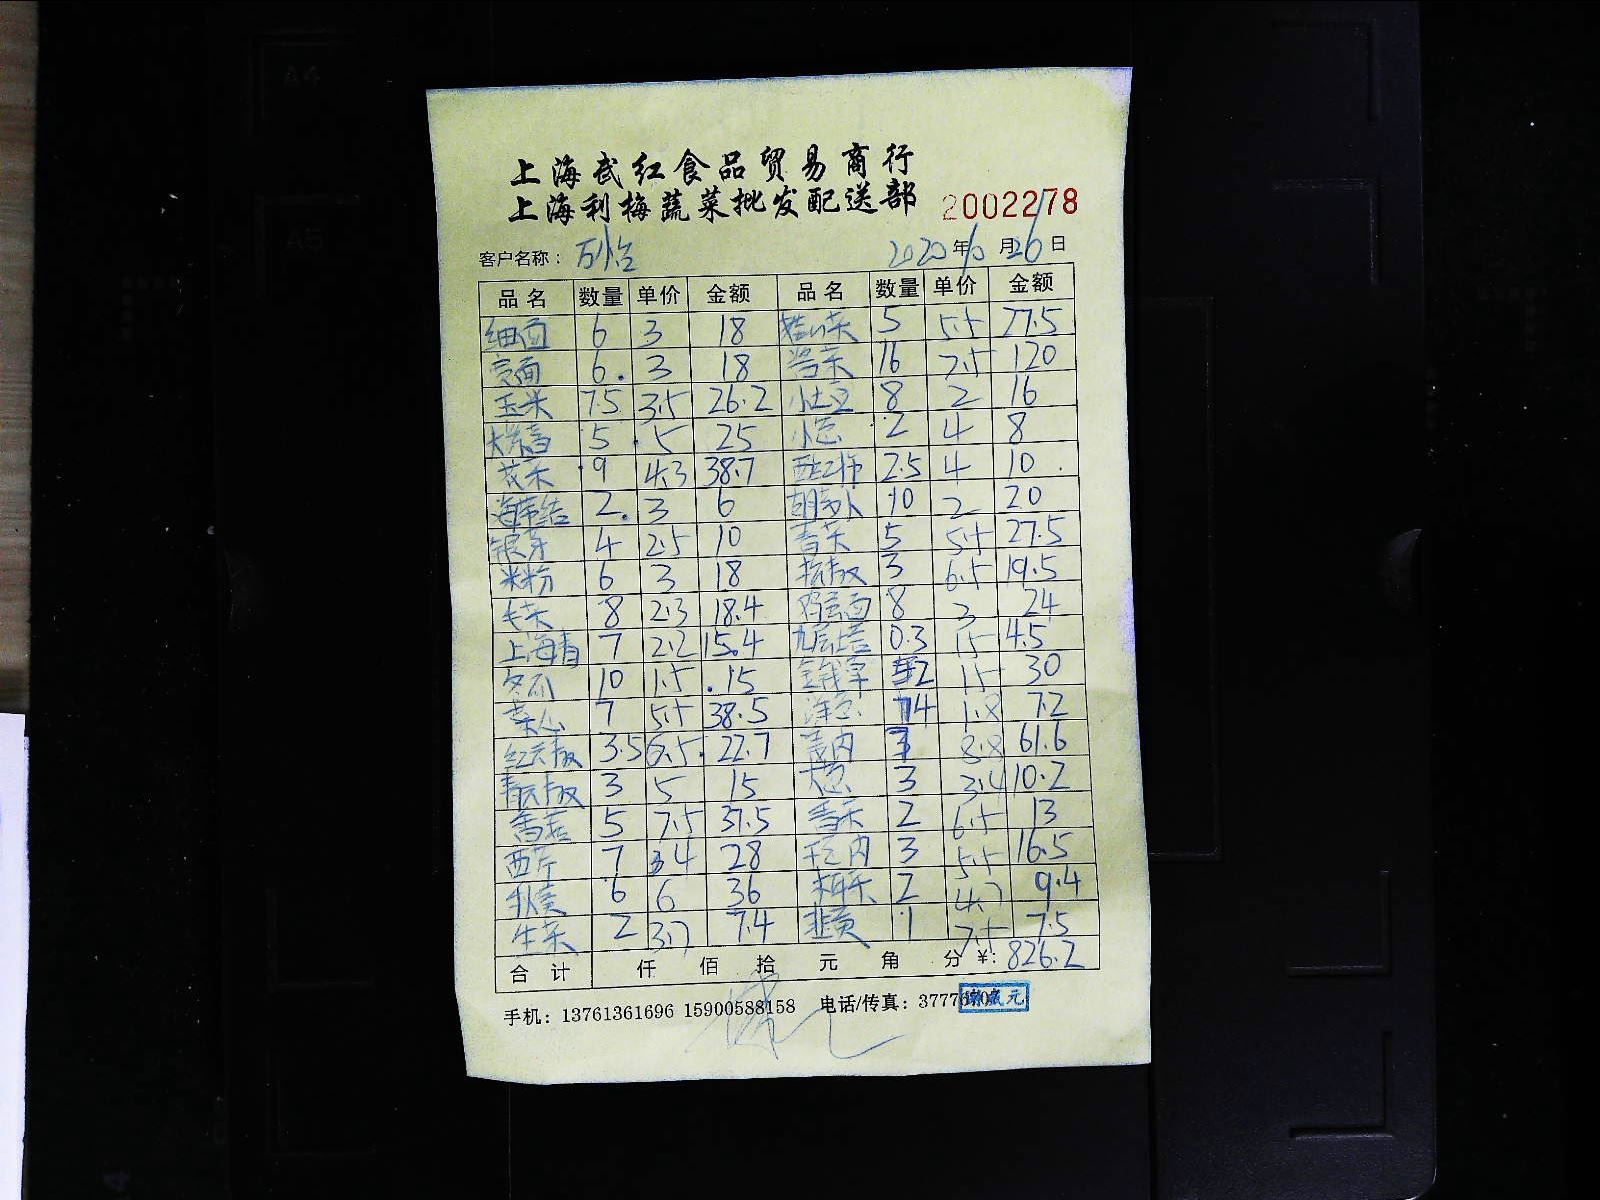 上海武红食品贸易商行
上海利梅蔬菜批发配送部 2002278
客户名称： 万怡 2020年10月26日
品名 数量 单价 金额 品名 数量 单价 金额
细面 6 3 18 5 5.5 27.5
宽面 6 3 18 16 7.5 120
玉米 7.5 3.5 26.2 小土豆 8 2 16
5 5 25 小葱 2 4 8
花菜 9 4.3 38.7 西红柿 2.5 4 10
海带结 2 3 6 胡萝卜 10 2 20
银芽 4 2.5 10 5 5.5 27.5
米粉 6 3 18 3 6.5 19.5
毛菜 8 2.3 18.4 鸡蛋面 8 3 24
上海青 7 2.2 15.4 九层塔 0.3 15 4.5
冬瓜 10 1.5 15 金钱草 2 15 30
菜心 7 5.5 38.5 洋葱 4 1.8 7.2
红尖椒 3.5 6.5 22.7 8.8 61.6
青尖椒 3 5 15 大葱 3 3.4 10.2
香菇 5 7.5 37.5 2 6.5 13
西芹 7 4 28 3 5.5 16.5
6 6 36 2 4.7 9.4
生菜 2 3.7 7.4 韭黄 1 7.5 7.5
合计 仟 佰 拾 元 角 分 ¥: 826.2
手机：13761361696 15900588158 电话/传真：3777